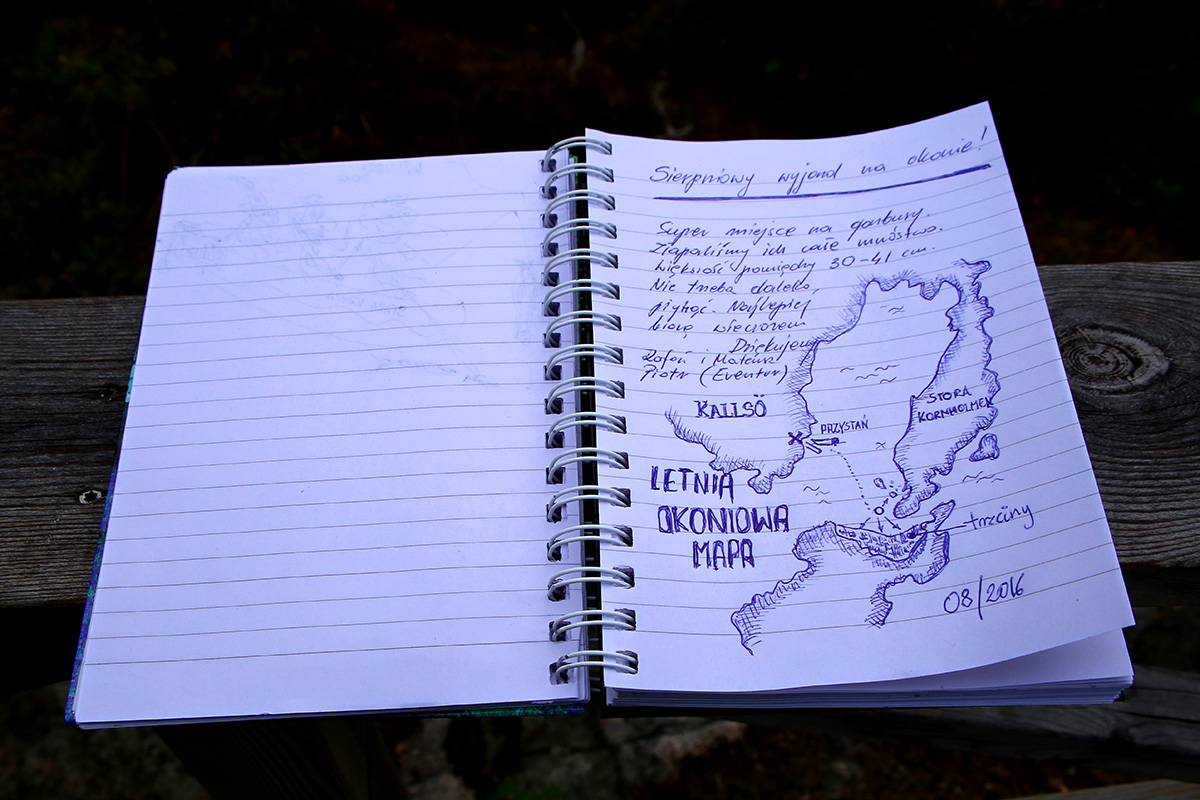 Sierpniowy wyjazd na okonie!
Super miejsce na garbusy.
Złapaliśmy ich całe mnóstwo.
Większość pomiędzy 30-41 cm.
Nie trzeba daleko
pływać. Najlepiej
biorą wieczorem
Dziękujemy
Rafał i Mateusz
Piotr (Eventur)
KALLSÖ
STORA
KORNHOLMEN
PRZYSTAŃ
LETNIA
OKONIOWA
MAPA
trzciny
08/2016